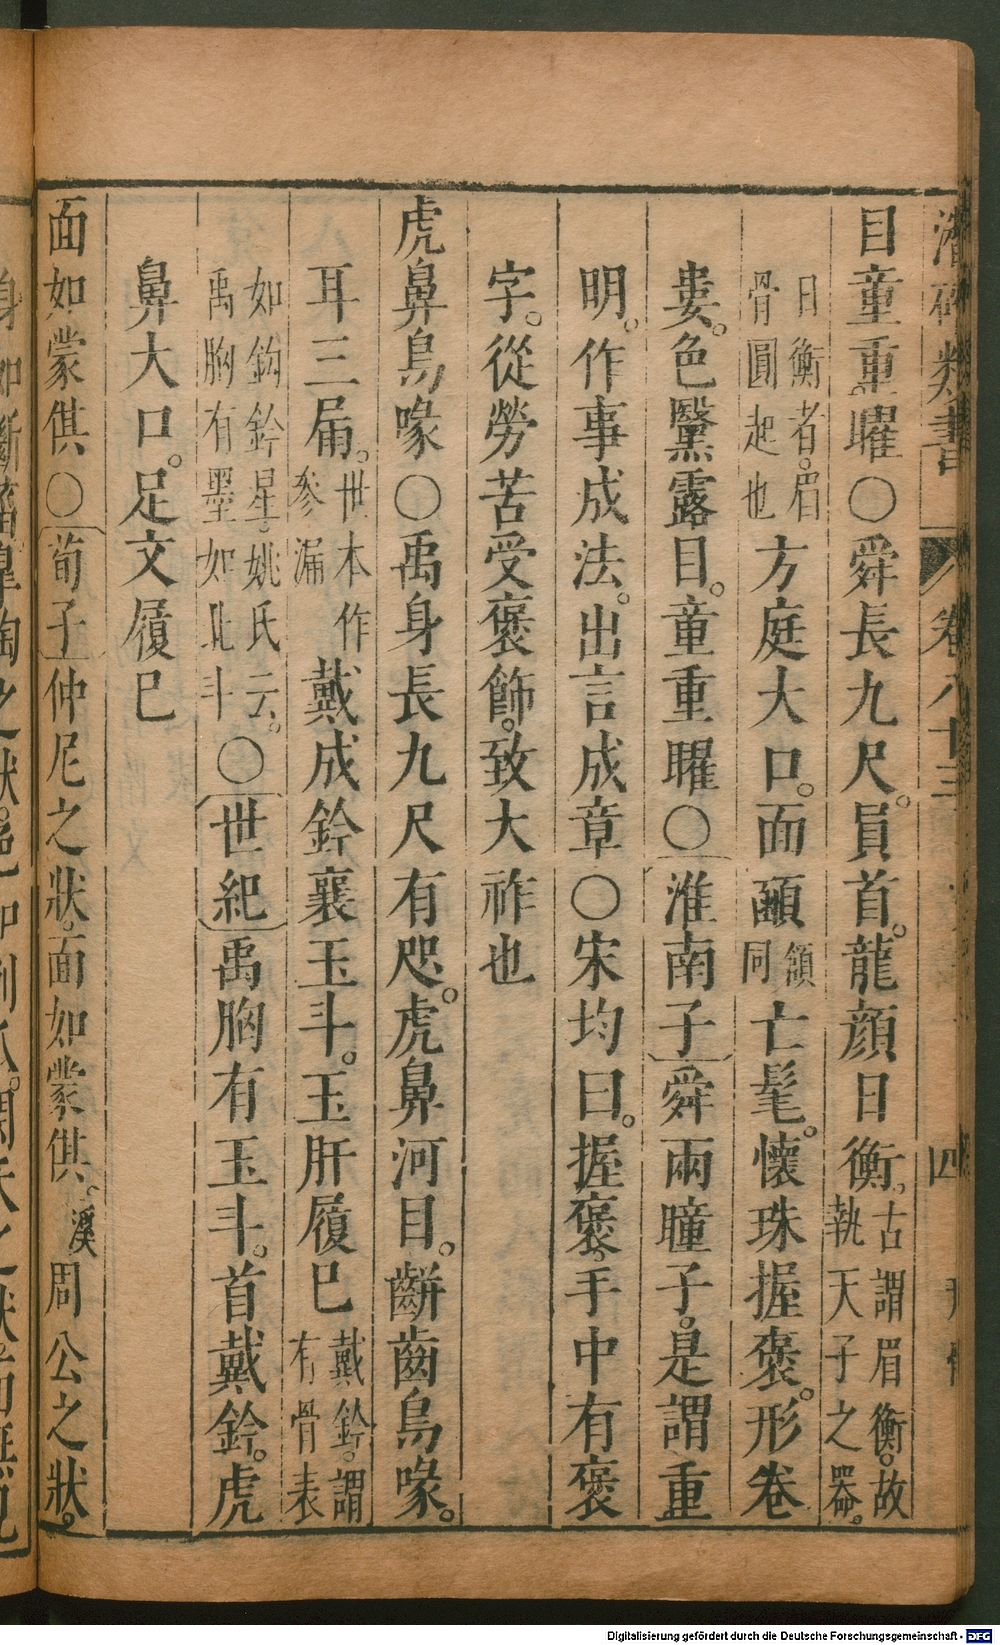 潛確類書
卷八十三
四
目童重曜〇舜長九尺。員首。龍顔日衡。古謂眉衡。故執天子之器。
日衡者。眉骨圓起也方庭大口。面顄頷同亡髦。懷珠握褒。形卷
婁。色黳露目。童重曜〇淮南子舜兩瞳子。是謂重
明。作事成法。出言成章〇宋均曰。握褒。手中有褒
字。從勞苦受褒飾。致大祚也
虎鼻鳥喙〇禹身長九尺有咫。虎鼻河目。齞齒鳥喙。
耳三扇。世本作參漏戴成鈐襄玉斗。玉肝履巳戴鈐。謂有骨表
如鉤鈐星。姚氏云。禹胸有墨如北斗〇世紀禹胸有玉斗。首戴鈐。虎
鼻大口。足文履巳
面如蒙倛〇荀子仲尼之狀。面如蒙倛。溪周公之狀。
Digitalisierung gefördert durch die Deutsche Forschungsgemeinschaft - DFG